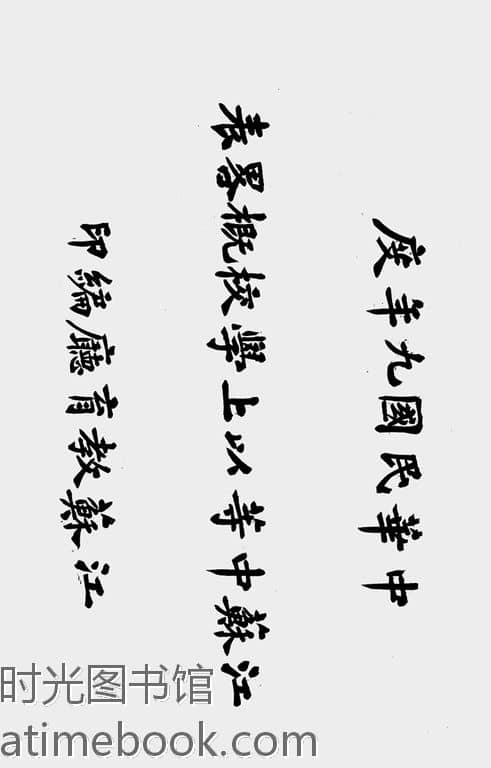 中華民國九年度
江蘇中等以上學校概畧表
江蘇教育廳編印
时光图书馆
atimebook.com